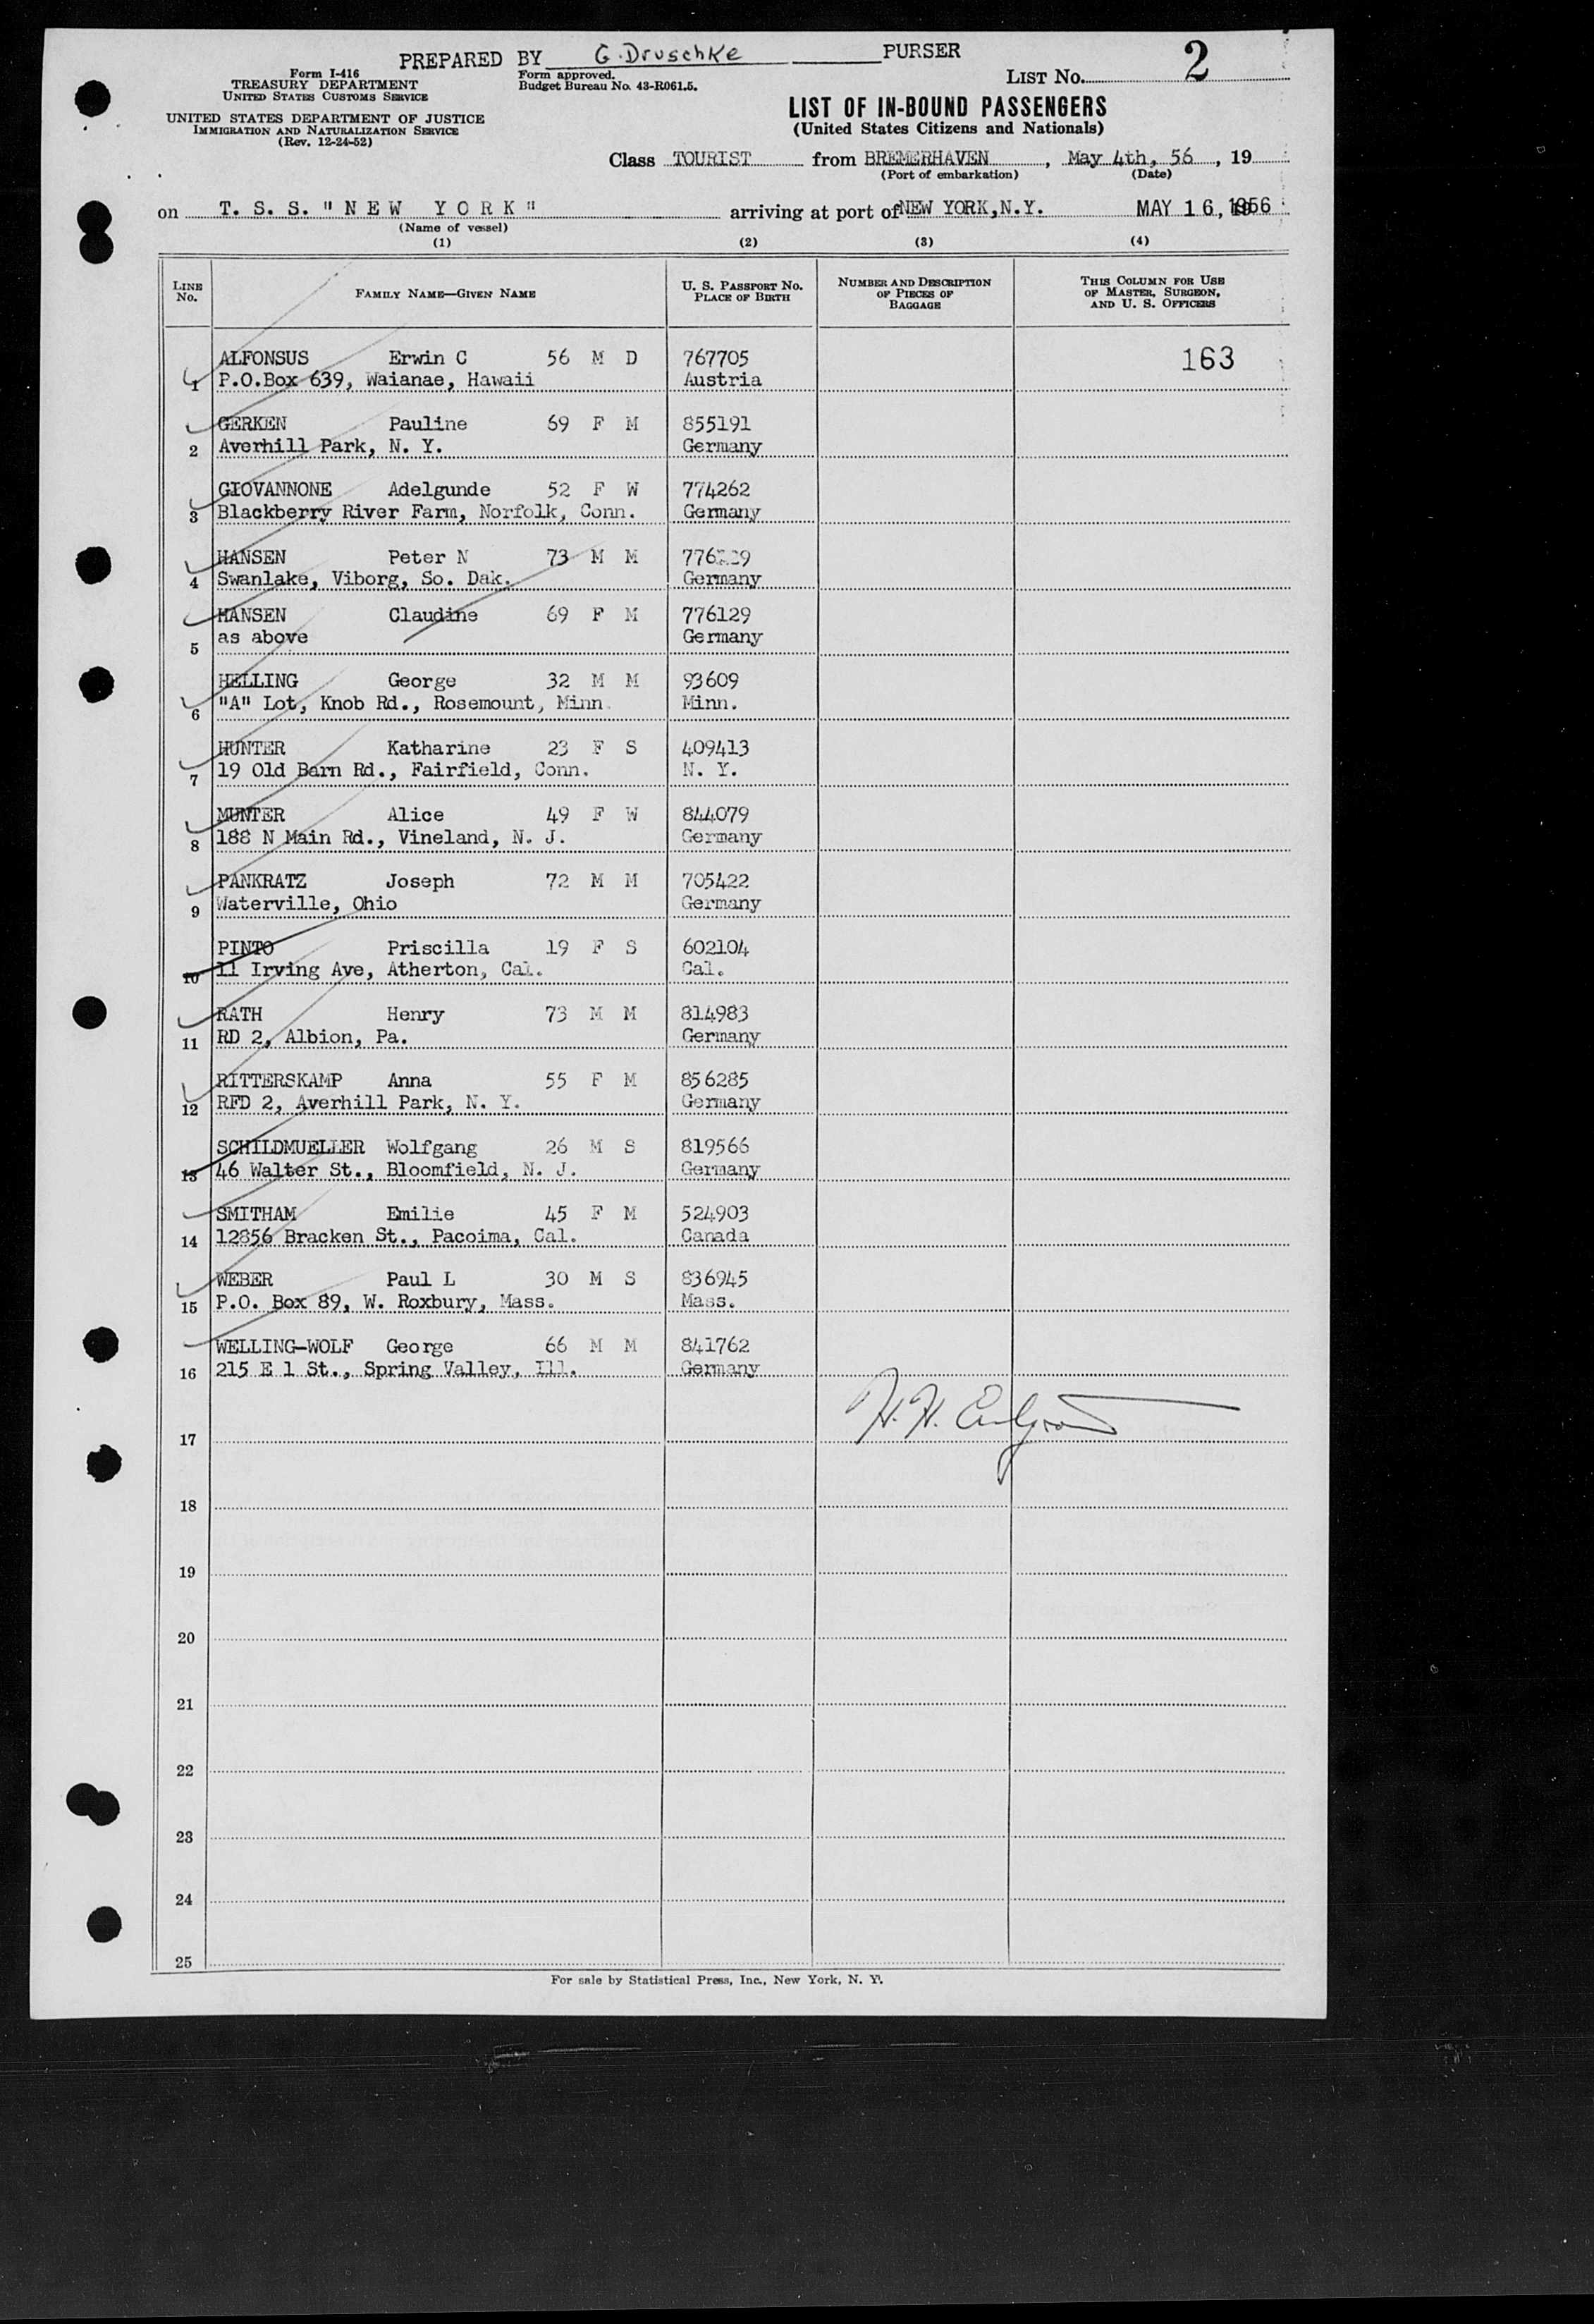 PREPARED BY G. Druschke PURSER
Form I-416
TREASURY DEPARTMENT
UNITED STATES CUSTOMS SERVICE
UNITED STATES DEPARTMENT OF JUSTICE
IMMIGRATION AND NATURALIZATION SERVICE
(Rev. 12-24-52)
Form approved.
Budget Bureau No. 43-R061.5.
LIST No. 2
LIST OF IN-BOUND PASSENGERS
(United States Citizens and Nationals)
Class TOURIST from BREMERHAVEN, May 4th, 56, 19
(Port of embarkation) (Date)
on T. S. S. "NEW YORK" arriving at port of NEW YORK, N.Y. MAY 16, 1956
(Name of vessel)
(1) (2) (3) (4)
LINE No. FAMILY NAME—GIVEN NAME U. S. PASSPORT No. PLACE OF BIRTH NUMBER AND DESCRIPTION OF PIECES OF BAGGAGE THIS COLUMN FOR USE OF MASTER, SURGEON, AND U. S. OFFICERS
ALFONSUS Erwin C 56 M D 767705 163
1 P.O.Box 639, Waianae, Hawaii Austria
GERKEN Pauline 69 F M 855191
2 Averhill Park, N. Y. Germany
GIOVANNONE Adelgunde 52 F W 774262
3 Blackberry River Farm, Norfolk, Conn. Germany
HANSEN Peter N 73 M M
4 Swanlake, Viborg, So. Dak. Germany
HANSEN Claudine 69 F M 776129
5 as above Germany
HELLING George 32 M M 93609
6 "A" Lot, Knob Rd., Rosemount, Minn. Minn.
HUNTER Katharine 23 F S 409413
7 19 Old Barn Rd., Fairfield, Conn. N. Y.
MUNTER Alice 49 F W 844079
8 188 N Main Rd., Vineland, N. J. Germany
PANKRATZ Joseph 72 M M 705422
9 Waterville, Ohio Germany
PINTO Priscilla 19 F S 602104
10 11 Irving Ave, Atherton, Cal. Cal.
RATH Henry 73 M M 814983
11 RD 2, Albion, Pa. Germany
RITTERSKAMP Anna 55 F M 856285
12 RFD 2, Averhill Park, N. Y. Germany
SCHILDMUELLER Wolfgang 26 M S 819566
13 46 Walter St., Bloomfield, N. J. Germany
SMITHAM Emilie 45 F M 524903
14 12856 Bracken St., Pacoima, Cal. Canada
WEBER Paul L 30 M S 836945
15 P.O. Box 89, W. Roxbury, Mass. Mass.
WELLING-WOLF George 66 M M 841762
16 215 E 1 St., Spring Valley, Ill. Germany
H. H.
17
18
19
20
21
22
23
24
25
For sale by Statistical Press, Inc., New York, N. Y.